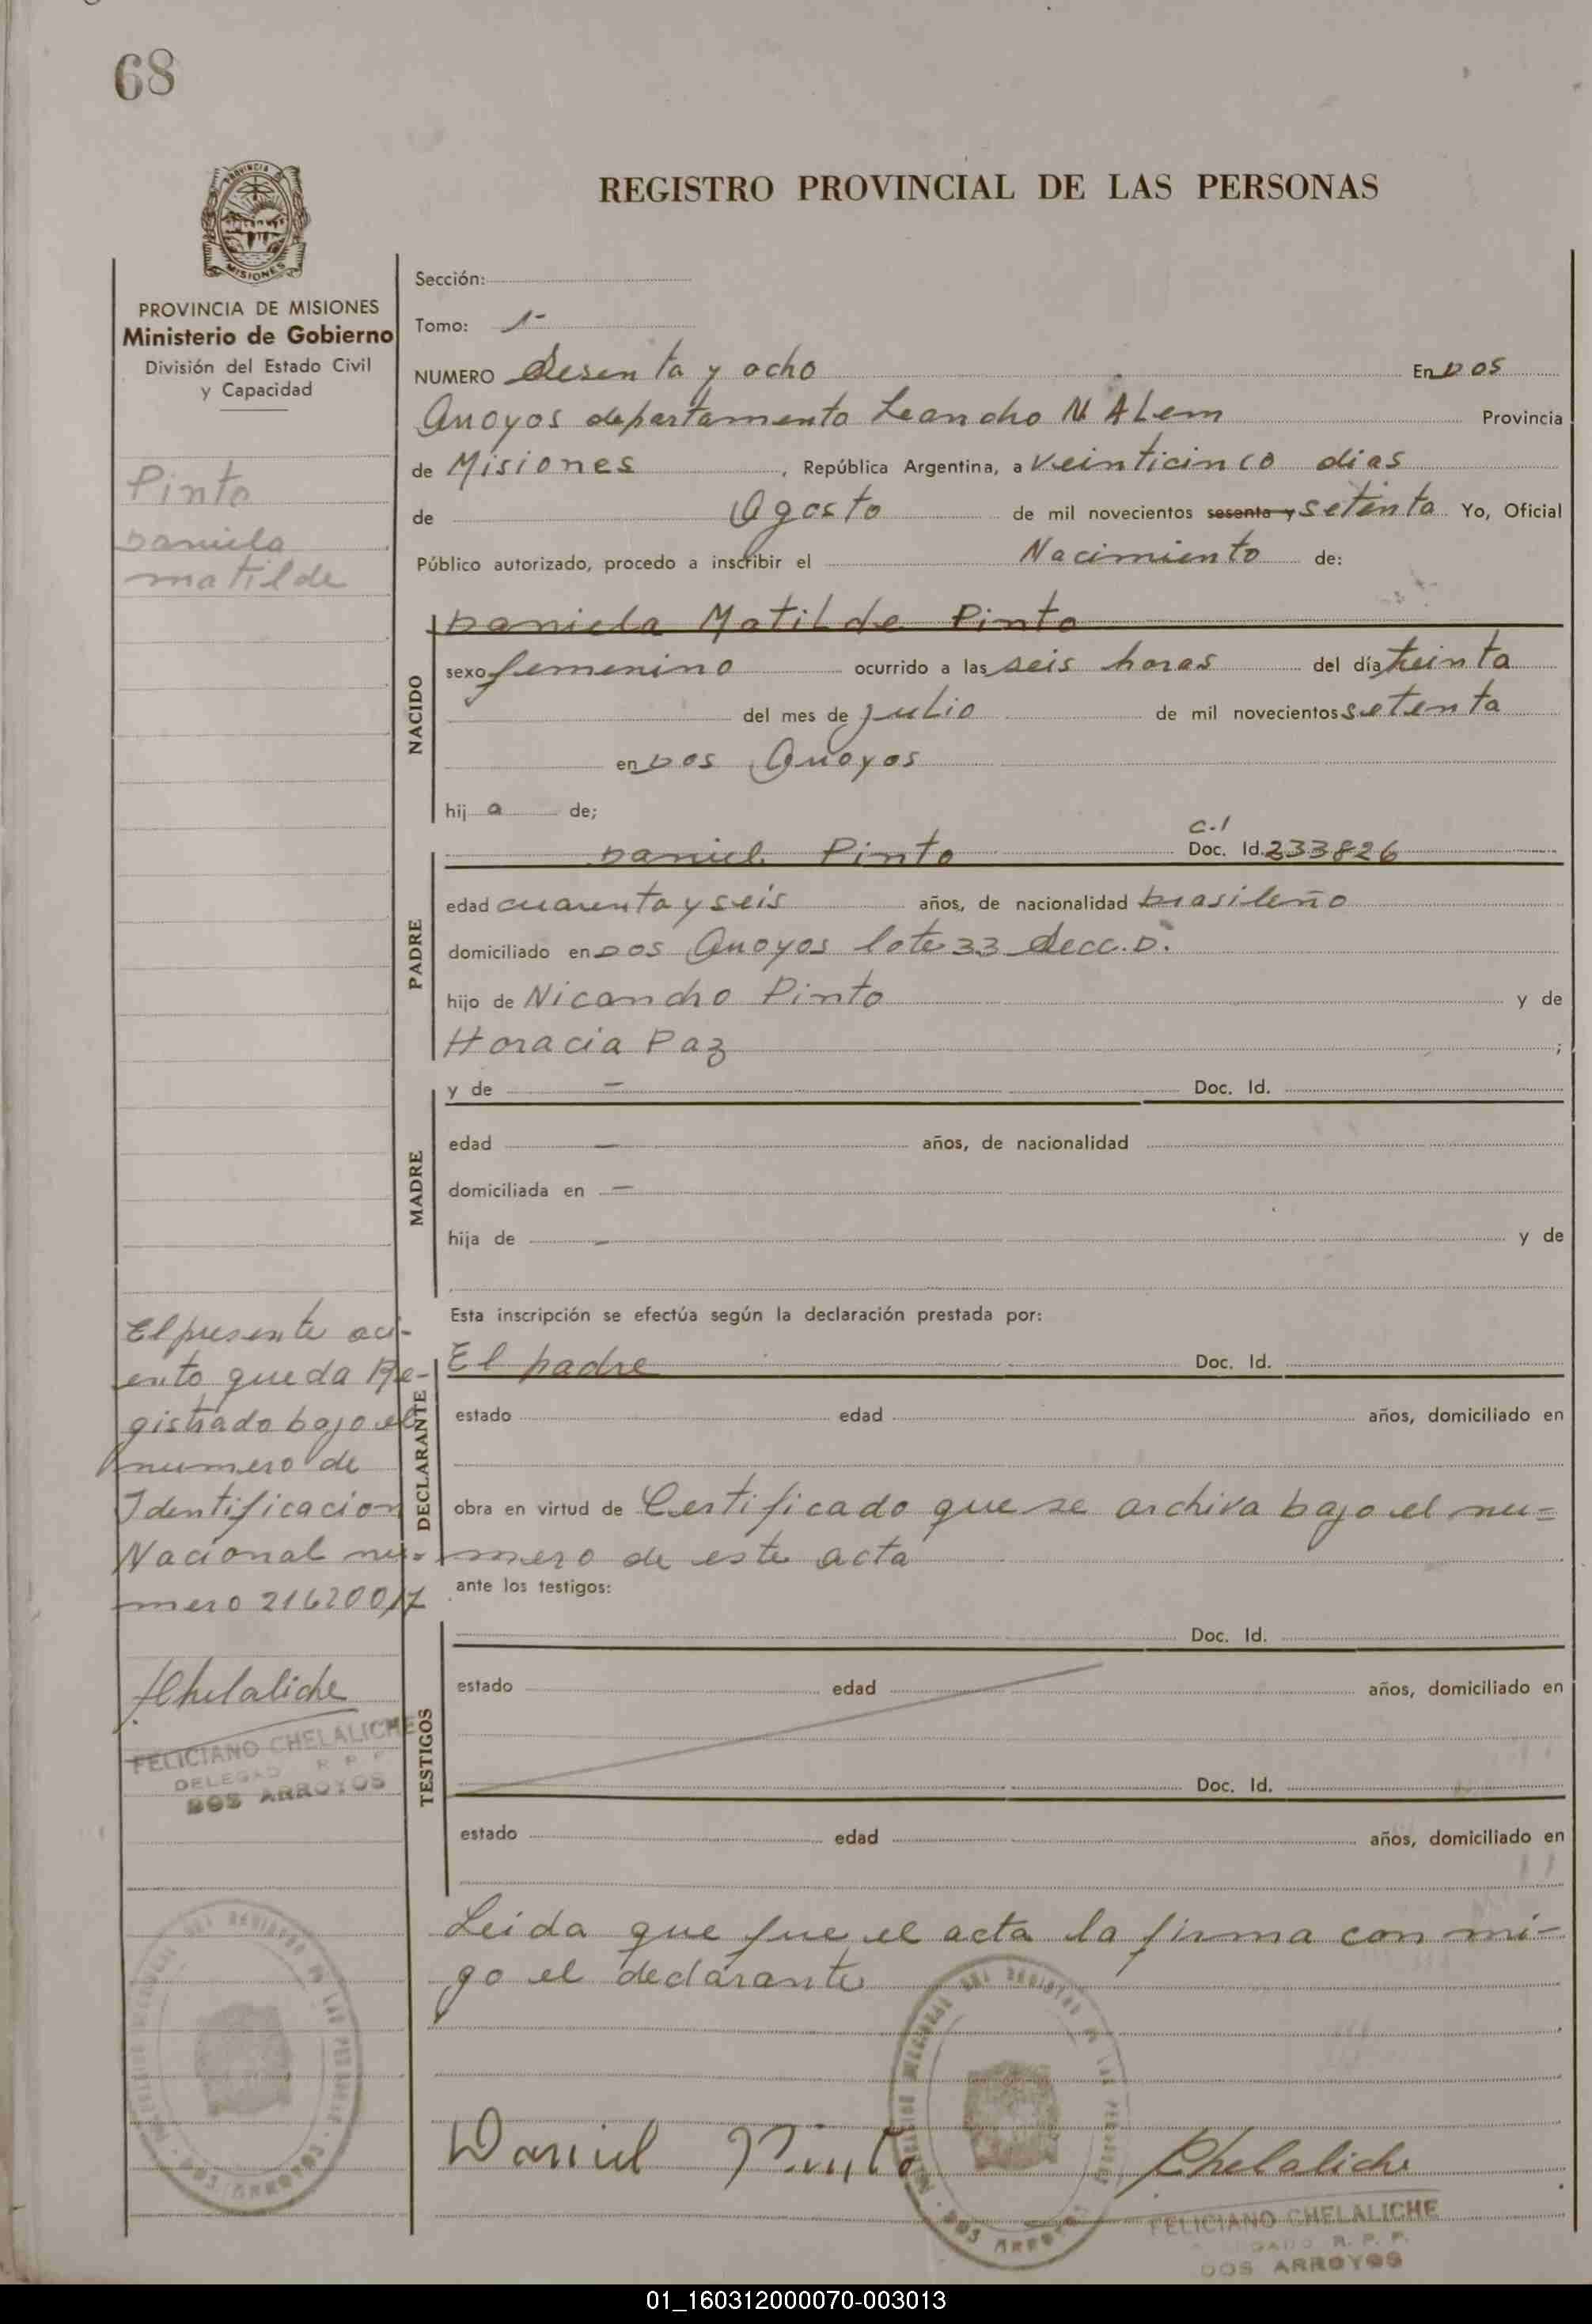 68
REGISTRO PROVINCIAL DE LAS PERSONAS
PROVINCIA
MISIONES
PROVINCIA DE MISIONES
Ministerio de Gobierno
División del Estado Civil
y Capacidad
Pinto
Daniela
matilde
Sección:
Tomo: 1-
NUMERO Sesenta y ocho En Dos
Arroyos departamento Leandro N ALem Provincia
de Misiones, República Argentina, a Veinticinco dias
de Agosto de mil novecientos sesenta y setenta Yo, Oficial
Público autorizado, procedo a inscribir el Nacimiento de:
NACIDO
Daniela Matilde Pinto
sexo femenino ocurrido a las seis horas del día treinta
del mes de julio de mil novecientos setenta
en Dos Arroyos
hija de;
PADRE
c.I
Daniel Pinto Doc. Id. 233826
edad cuarenta y seis años, de nacionalidad brasileño
domiciliado en Dos Arroyos lote 33 Secc. D.
hijo de Nicandro Pinto y de
Horacia Paz ;
MADRE
y de — Doc. Id.
edad — años, de nacionalidad
domiciliada en —
hija de — y de
Esta inscripción se efectúa según la declaración prestada por:
DECLARANTE
El padre Doc. Id.
estado edad años, domiciliado en
obra en virtud de Certificado que se archiva bajo el nu=
mero de este acta
ante los testigos:
El presente aci-
ento queda Re-
gistrado bajo el
numero de
Identificacion
Nacional nu-
mero 21620017
Chelaliche
FELICIANO CHELALICHE
DELEGADO R. P. P.
DOS ARROYOS
TESTIGOS
Doc. Id.
estado edad años, domiciliado en
Doc. Id.
estado edad años, domiciliado en
Leida que fue el acta la firma con mi-
go el declarante
Daniel Pinto
Chelaliche
FELICIANO CHELALICHE
R. P. P.
DOS ARROYOS
DEL REGISTRO DE LAS PERSONAS
DOS ARROYOS
01_160312000070-003013